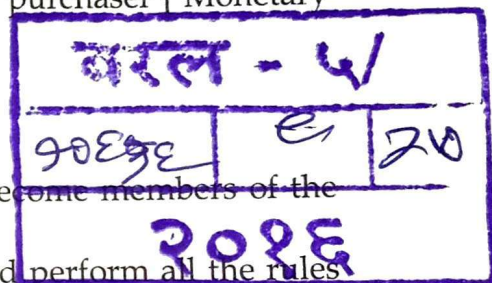 purchaser | Monetary
बरल - ५/
९ २७
ecome members of the
२०१६
d perform all the rules